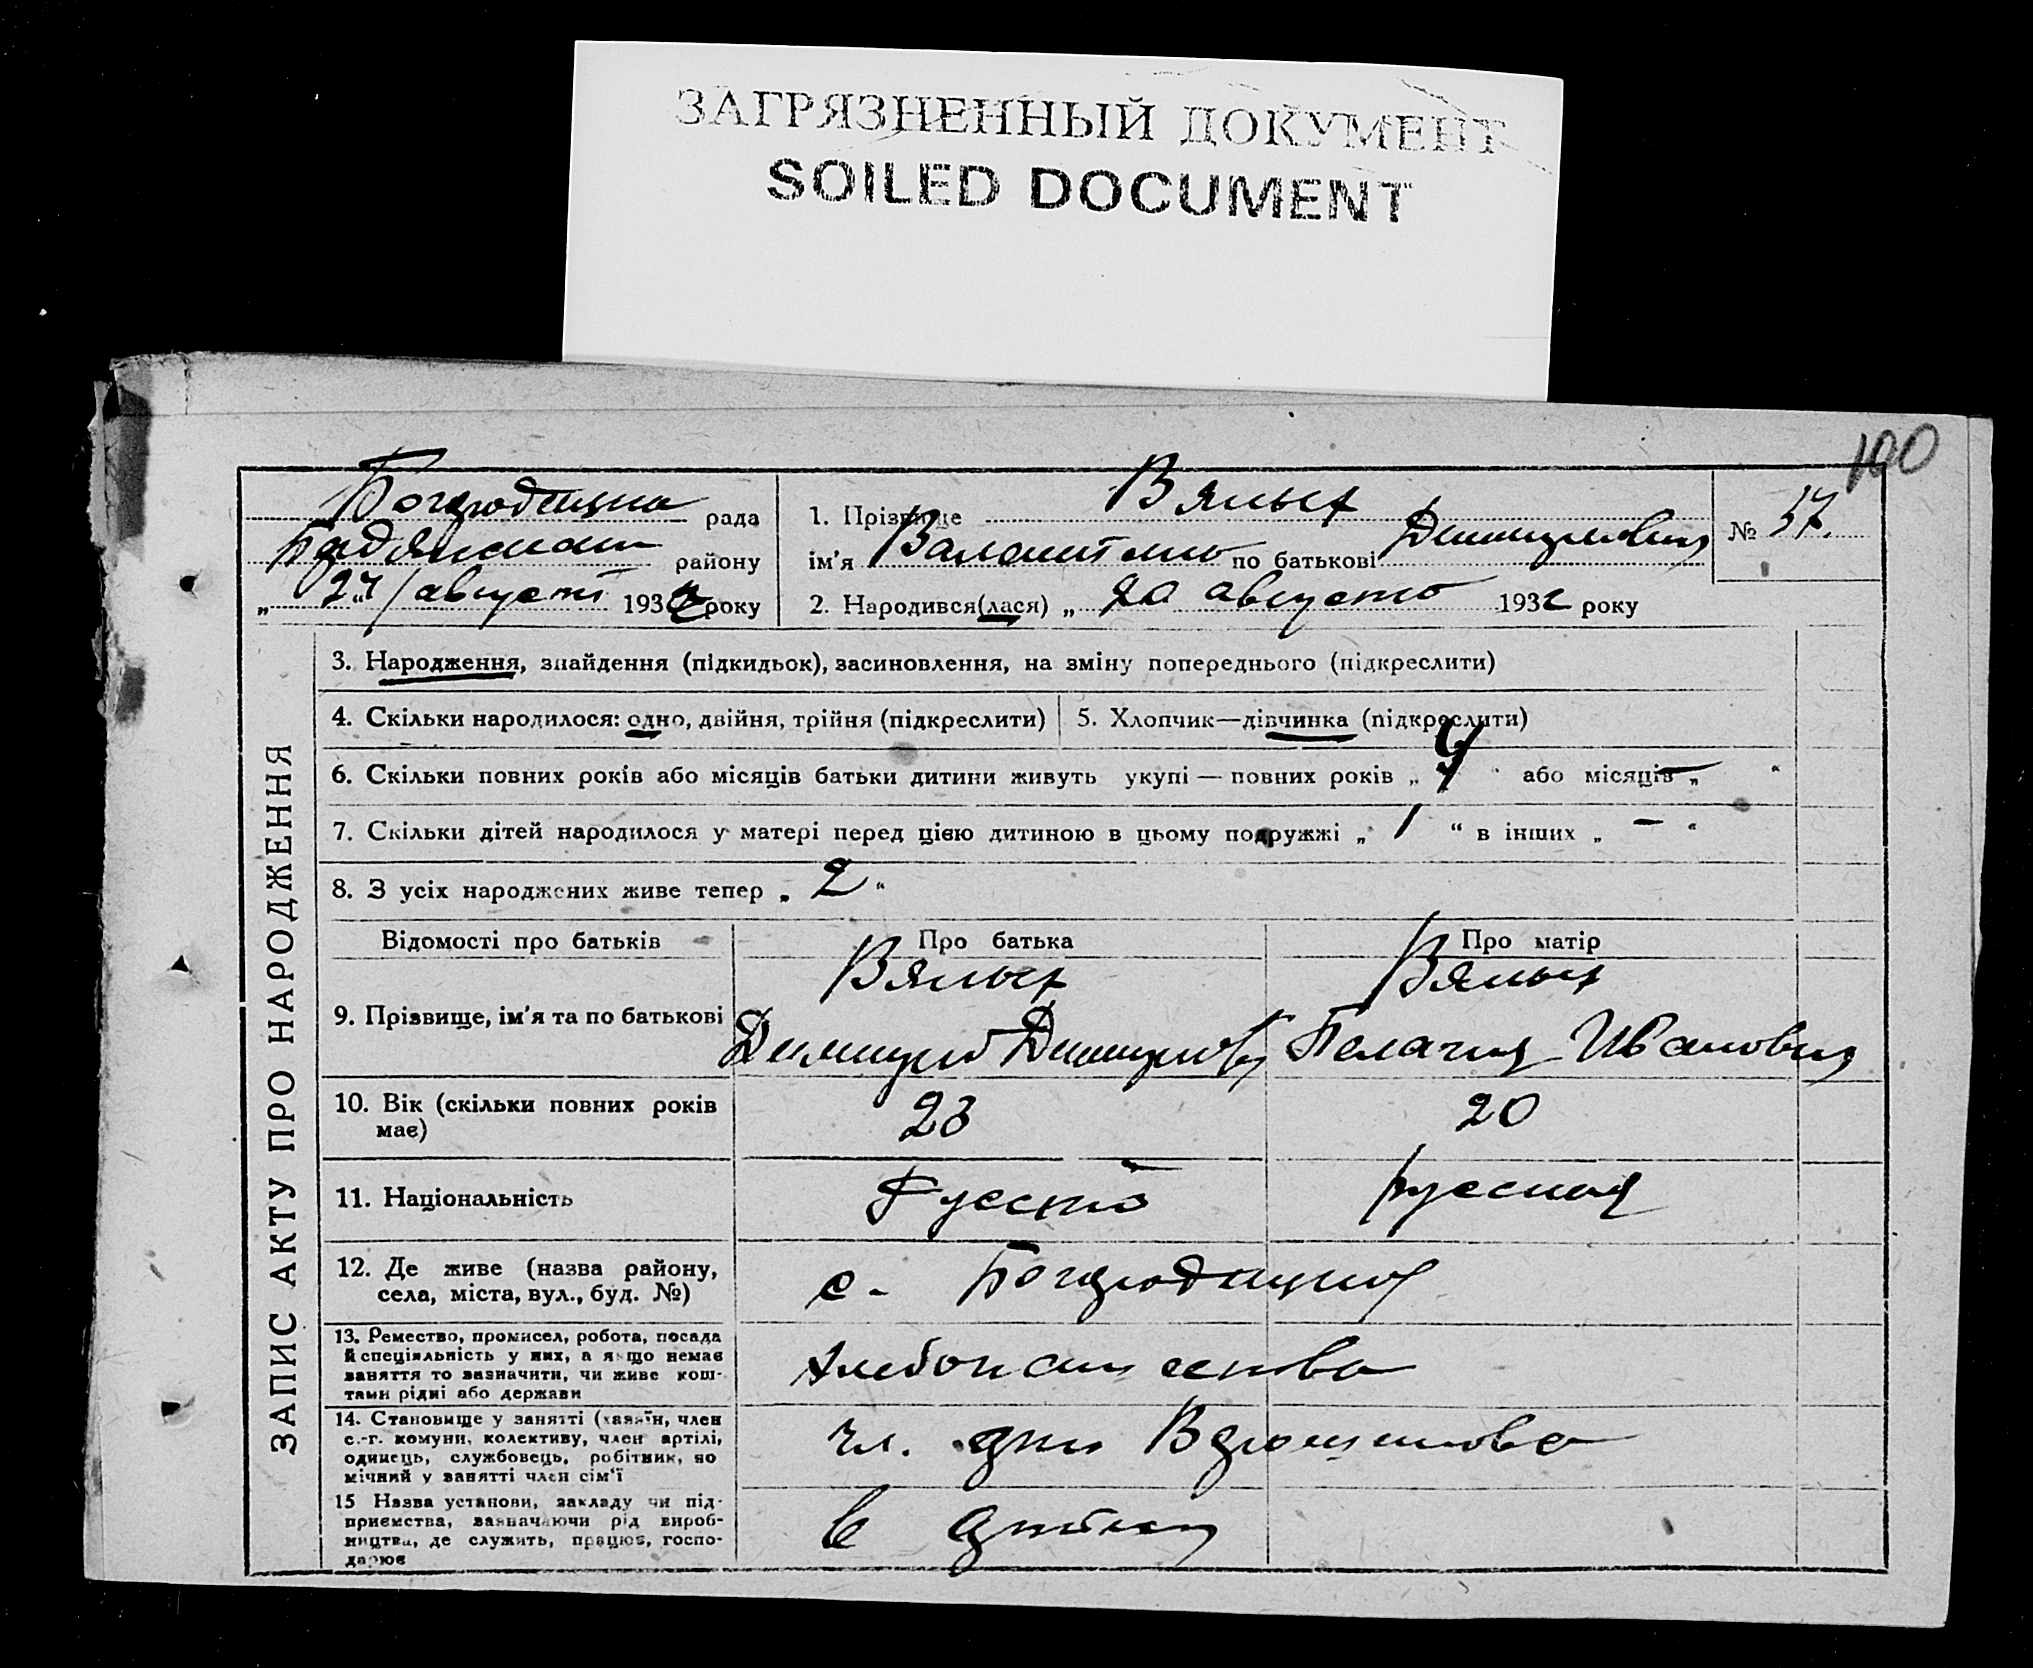 ЗАГРЯЗНЕННЫЙ ДОКУМЕНТ
SOILED DOCUMENT
100
рада
району
„ 24 " августа 1932 року
1. Прізвище Вялых
ім'я по батькові
2. Народився(лася) „ 20 августа 1932 року
№ 57.
ЗАПИС АКТУ ПРО НАРОДЖЕННЯ
3. Народження, знайдення (підкидьок), засиновлення, на зміну попереднього (підкреслити)
4. Скільки народилося: одно, двійня, трійня (підкреслити)
5. Хлопчик—дівчинка (підкреслити)
6. Скільки повних років або місяців батьки дитини живуть укупі — повних років „ 4 " або місяців „ — "
7. Скільки дітей народилося у матері перед цією дитиною в цьому подружжі „ 1 " в інших „ — "
8. З усіх народжених живе тепер „ 2 "
Відомості про батьків
Про батька
Про матір
9. Прізвище, ім'я та по батькові
Вялых
Вялых
Пелагия Ивановна
10. Вік (скільки повних років
має)
23
20
11. Національність
Русский
русская
12. Де живе (назва району,
села, міста, вул., буд. №)
с.
13. Ремество, промисел, робота, посада
й спеціяльність у них, а якщо немає
заняття то зазначити, чи живе кош-
тами рідні або держави
14. Становище у занятті (хазяїн, член
с.-г. комуни, колективу, член артілі,
одинець, службовець, робітник, по
мічний у занятті член сім'ї
чл.
15 Назва установи, закладу чи під-
приємства, зазначаючи рід вироб-
ництва, де служить, працює, госпо-
дарює
в